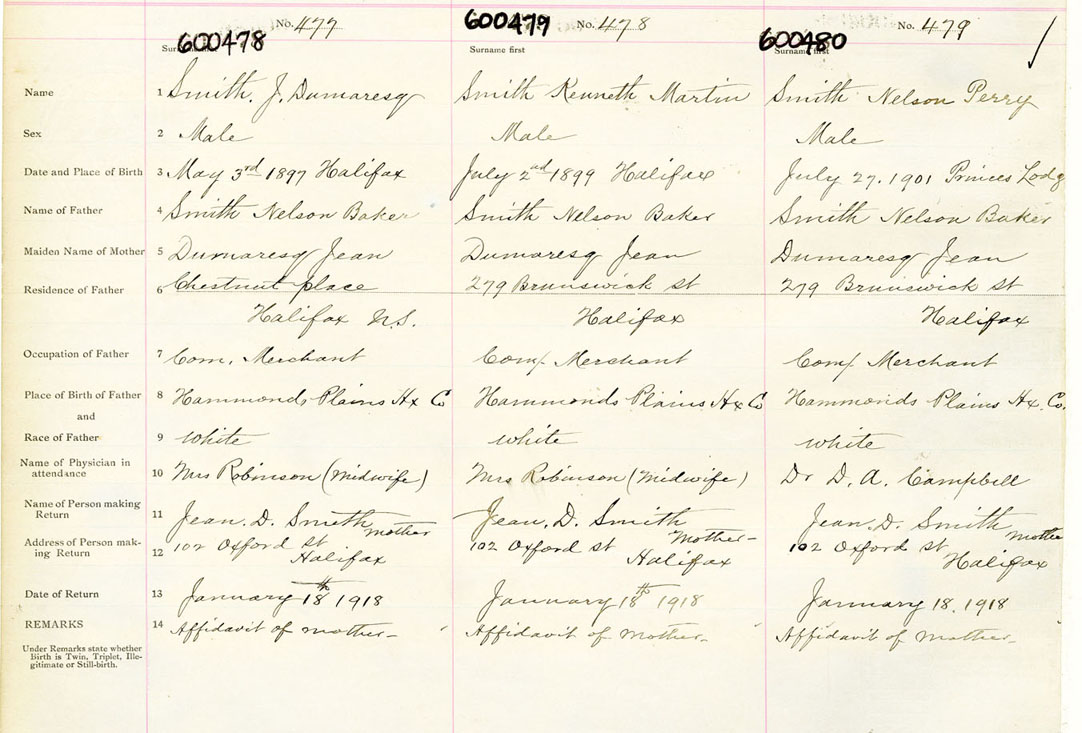 No. 477
600478
Smith. J. Dumaresq
Male
May 3rd 1897 Halifax
Smith Nelson Baker
Dumaresq Jean
Chestnut place
Halifax N.S.
Com. Merchant
Hammonds Plains Hx Co
white
Mrs Robinson (Midwife)
Jean. D. Smith
mother
102 Oxford St
Halifax
January 18th 1918
Affidavit of mother-
600479 No. 478
Surname first
Smith Kenneth Martin
Male
July 2nd 1899 Halifax
Smith Nelson Baker
Dumaresq Jean
279 Brunswick st
Halifax
Com. Merchant
Hammonds Plains Hx Co
white
Mrs Robinson (Midwife)
Jean. D. Smith
Mother-
102 Oxford st
Halifax
January 18th 1918
Affidavit of Mother-
No. 479
600480
Surname first
Smith Nelson Perry
Male
July 27. 1901 Princes Lodg
Smith Nelson Baker
Dumaresq Jean
279 Brunswick st
Halifax
Com. Merchant
Hammonds Plains Hx. Co.
white
Dr D. A. Campbell
Jean. D. Smith
Mother
102 Oxford st
Halifax
January 18. 1918
Affidavit of Mother-
Name 1
Sex 2
Date and Place of Birth 3
Name of Father 4
Maiden Name of Mother 5
Residence of Father 6
Occupation of Father 7
Place of Birth of Father 8
and
Race of Father 9
Name of Physician in
attendance 10
Name of Person making
Return 11
Address of Person mak-
ing Return 12
Date of Return 13
REMARKS 14
Under Remarks state whether
Birth is Twin, Triplet, Ille-
gitimate or Still-birth.